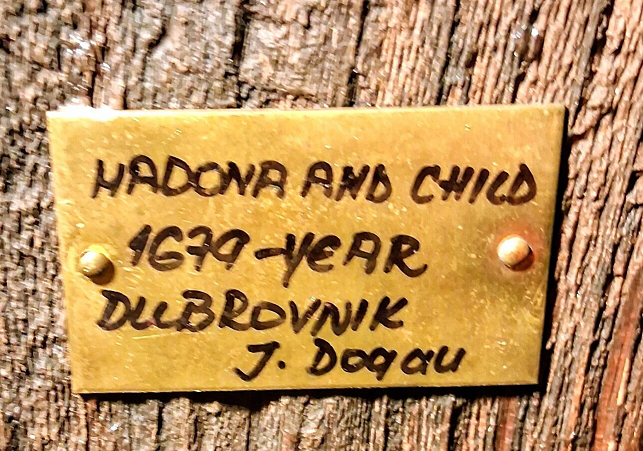 MADONA AND CHILD
1679-YEAR
DUBROVNIK
J. Dogau